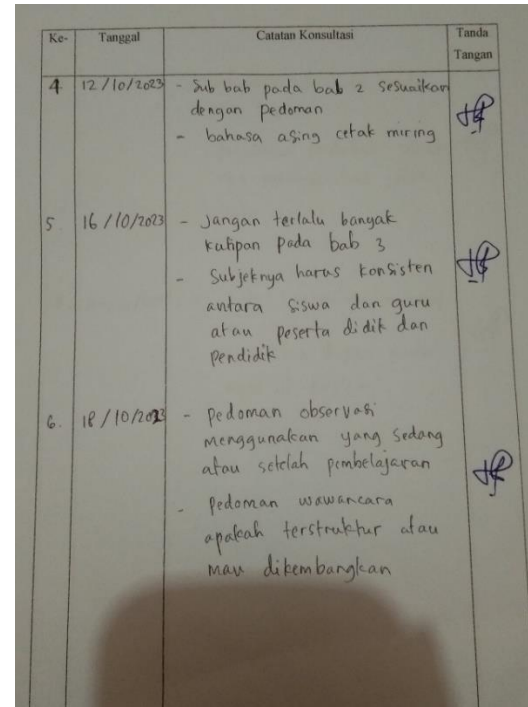 Ke- Tanggal Catatan Konsultasi Tanda Tangan
4 12/10/2023 - Sub bab pada bab 2 sesuaikan
dengan pedoman
- bahasa asing cetak miring
5 16/10/2023 - Jangan terlalu banyak
kutipan pada bab 3
- Subjeknya harus konsisten
antara siswa dan guru
atau peserta didik dan
pendidik
6. 18/10/2023 - pedoman observasi
menggunakan yang sedang
atau setelah pembelajaran
- Pedoman wawancara
apakah terstruktur atau
mau dikembangkan